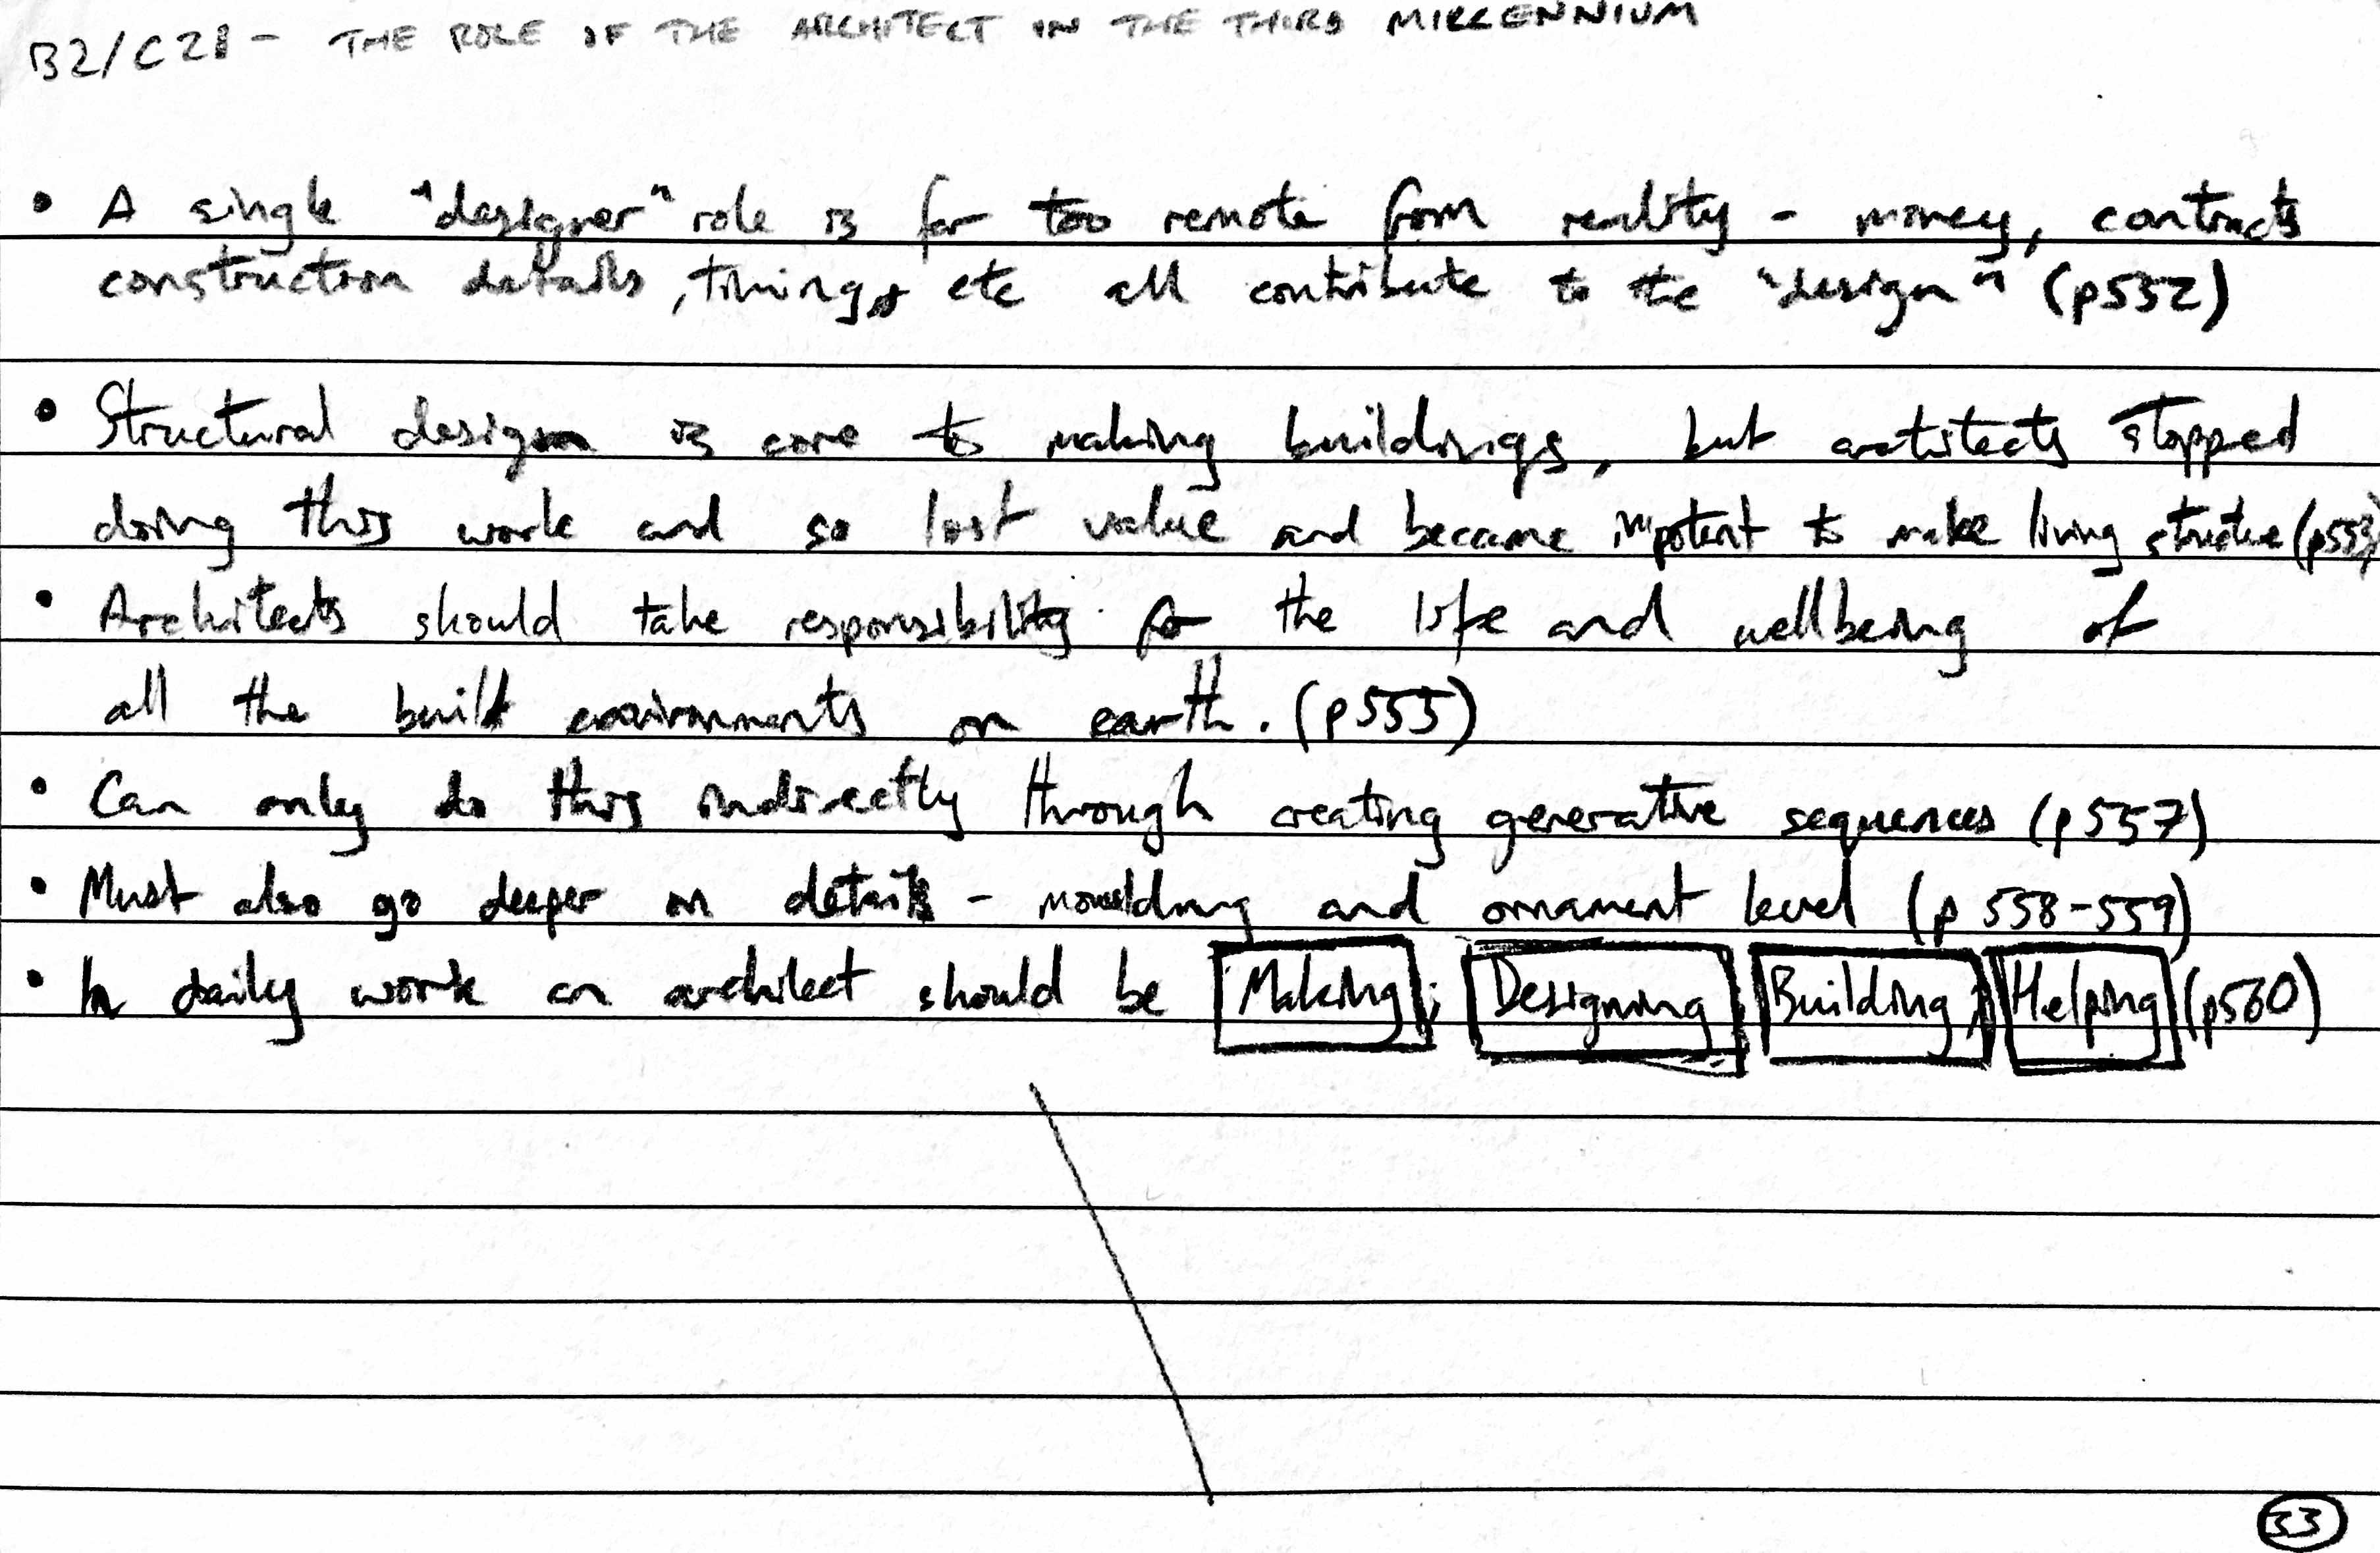 B2/C21 - THE ROLE OF THE ARCHITECT IN THE THIRD MILLENNIUM
• A single "designer" role is far too remote from reality - money, contracts
construction details, timing, etc all contribute to the "design" (p552)
• Structural design is core to making buildings, but architects stopped
doing this work and so lost value and became impotent to make living structure (p553)
• Architects should take responsibility for the life and wellbeing of
all the built environments on earth. (p555)
• Can only do this indirectly through creating generative sequences (p557)
• Must also go deeper on details - moulding and ornament level (p 558-559)
• In daily work an architect should be Making; Designing; Building; Helping (p560)
33